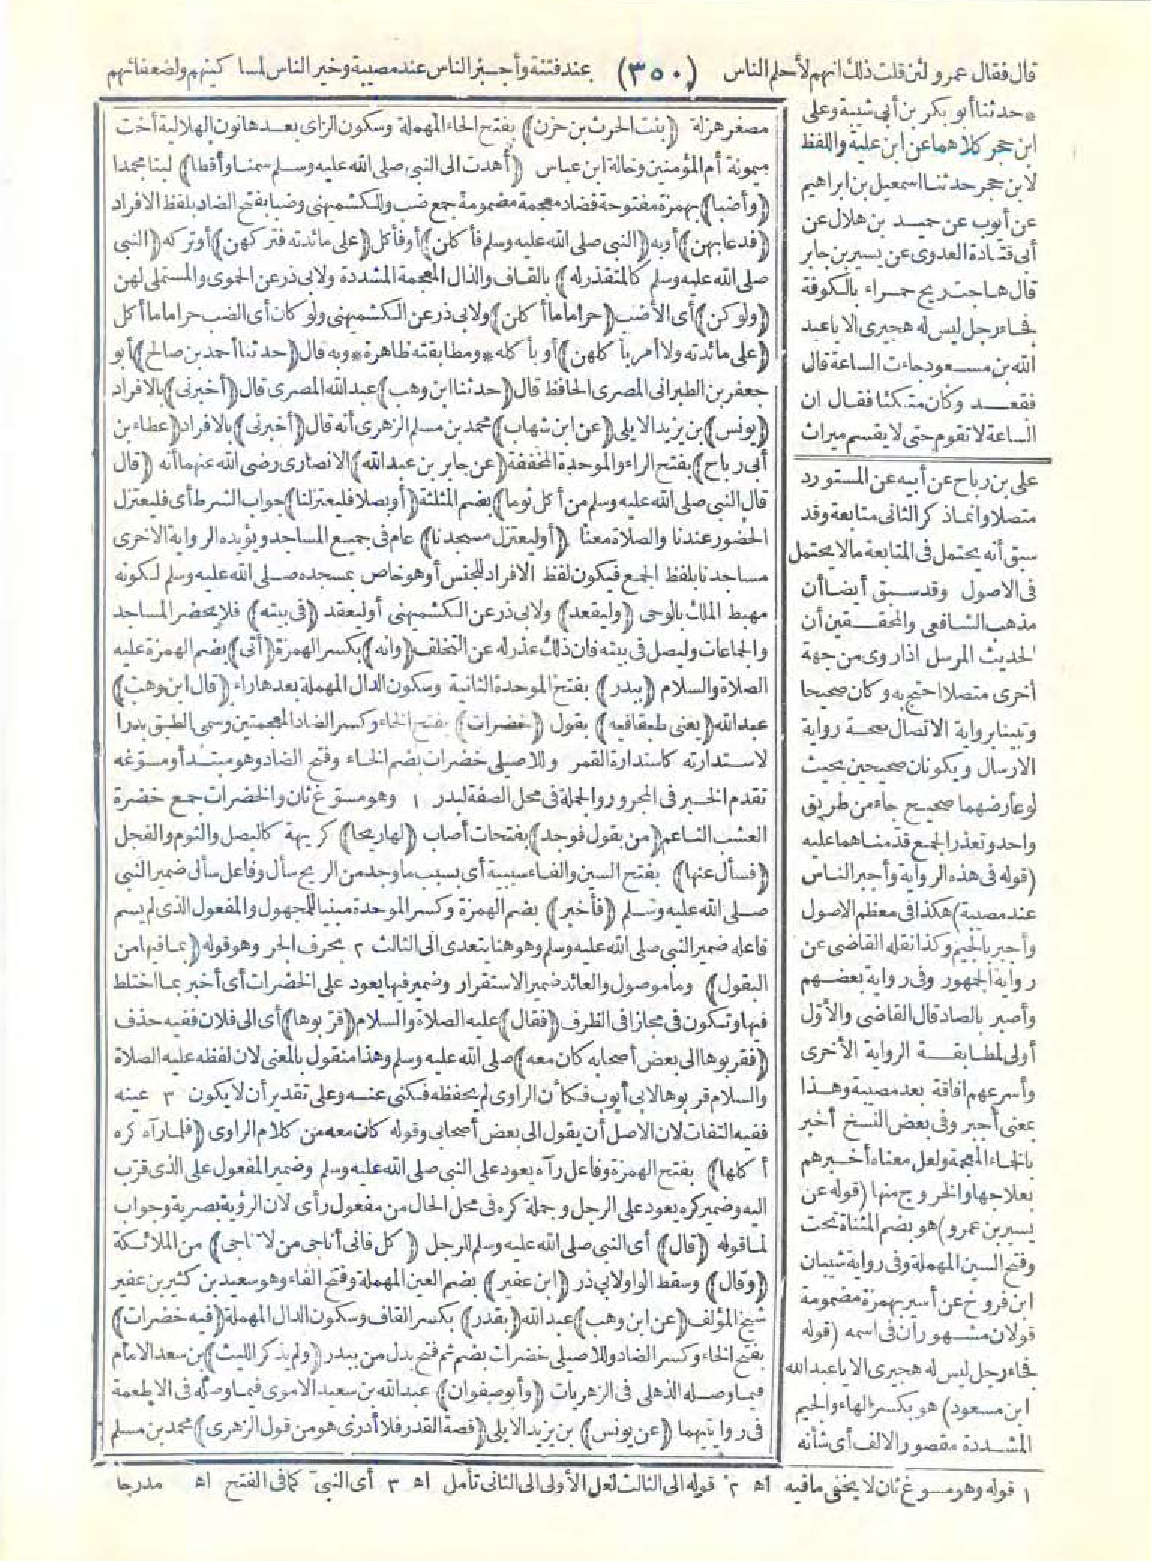 قال فقال عمرو لئن قلت ذلك انهم لأحلم الناس (٣٥٠) عند فتنة وأجبر الناس عند مصيبة وخير الناس لمساكينهم ولضعفائهم
* حدثنا أبو بكر بن أبي شيبة وعلى
ابن حجر كلاهما عن ابن علية واللفظ
لابن حجر حدثنا اسمعيل بن ابراهيم
عن أيوب عن حميد بن هلال عن
أبى قتادة العدوى عن يسير بن جابر
قال هاجت ريح حمراء بالكوفة
فجاء رجل ليس له هجيرى الا يا عبد
الله بن مسعود جاءت الساعة قال
فقعد وكان متكئا فقال ان
الساعة لا تقوم حتى لا يقسم ميراث
على بن رباح عن أبيه عن المستورد
متصلا وانما ذكر الثانى متابعة وقد
سبق أنه يحتمل فى المتابعة مالا يحتمل
فى الاصول وقد سبق أيضا أن
مذهب الشافعى والمحققين أن
الحديث المرسل اذا روى من جهة
أخرى متصلا احتج به وكان صحيحا
وتبينا برواية الاتصال صحة رواية
الارسال ويكونان صحيحين بحيث
لو عارضهما صحيح جاء من طريق
واحد وتعذر الجمع قدمناهما عليه
(قوله فى هذه الرواية وأجبر الناس
عند مصيبة) هكذا فى معظم الاصول
وأجبر بالجيم وكذا نقله القاضى عن
رواية الجمهور وفى رواية بعضهم
وأصبر بالصاد قال القاضى والأول
أولى لمطابقة الرواية الأخرى
وأسرعهم افاقة بعد مصيبة وهذا
بمعنى أجبر وفى بعض النسخ أخبر
بالخاء المعجمة ولعل معناه أخبرهم
بعلاجها والخروج منها (قوله عن
يسير بن عمرو) هو بضم المثناة تحت
وفتح السين المهملة وفى رواية شيبان
ابن فروخ عن أسير بهمزة مضمومة
قولان مشهوران فى اسمه (قوله
فجاء رجل ليس له هجيرى الا يا عبد الله
ابن مسعود) هو بكسر الهاء والجيم
المشددة مقصور الالف أى شأنه
مصغر هزلة (بنت الحرث بن حزن) بفتح الحاء المهملة وسكون الزاى بعدها نون الهلالية أخت
ميمونة أم المؤمنين وخالة ابن عباس (أهدت الى النبى صلى الله عليه وسلم سمنا وأقطا) لبنا مجمدا
(وأضبا) بهمزة مفتوحة فضاد معجمة مضمومة جمع ضب وللكشميهنى وضبا بفتح الضاد بلفظ الافراد
(فدعا بهن) أو به (النبى صلى الله عليه وسلم فأكلن) أو فأكل (على مائدته فتركهن) أو تركه (النبى
صلى الله عليه وسلم كالمتقذر له) بالقاف والذال المعجمة المشددة ولابى ذر عن الحموى والمستملى لهن
(ولو كن) أى الأضب (حراما ما أكلن) ولابى ذر عن الكشميهنى ولو كان أى الضب حراما ما أكل
(على مائدته ولا أمر بأكلهن) أو بأكله * ومطابقته ظاهرة * وبه قال (حدثنا أحمد بن صالح) أبو
جعفر بن الطبرانى المصرى الحافظ قال (حدثنا ابن وهب) عبد الله المصرى قال (أخبرنى) بالافراد
(يونس) بن يزيد الايلى (عن ابن شهاب) محمد بن مسلم الزهرى أنه قال (أخبرنى) بالافراد (عطاء بن
أبى رباح) بفتح الراء والموحدة المخففة (عن جابر بن عبد الله) الانصارى رضى الله عنهما أنه (قال
قال النبى صلى الله عليه وسلم من أكل ثوما) بضم المثلثة (أو بصلا فليعتزلنا) جواب الشرط أى فليعتزل
الحضور عندنا والصلاة معنا (أو ليعتزل مسجدنا) عام فى جميع المساجد ويؤيده الرواية الاخرى
مساجدنا بلفظ الجمع فيكون لفظ الافراد للجنس أو هو خاص بمسجده صلى الله عليه وسلم لكونه
مهبط الملك بالوحى (وليقعد) ولابى ذر عن الكشميهنى أو ليعقد (فى بيته) فلا يحضر المساجد
والجماعات وليصل فى بيته فان ذلك عذر له عن التخلف (وانه) بكسر الهمزة (أتى) بضم الهمزة عليه
الصلاة والسلام (ببدر) بفتح الموحدة الثانية وسكون الدال المهملة بعدها راء (قال ابن وهب)
عبد الله (يعنى طبقا فيه) بقول (خضرات) بفتح الخاء وكسر الضاد المعجمتين وسمى الطبق بدرا
لاستدارته كاستدارة القمر وللاصيلى خضرات بضم الخاء وفتح الضاد وهو مبتدأ ومسوغه
تقدم الخبر فى المجرور والجملة فى محل الصفة لبدر ١ وهو مسوغ ثان والخضرات جمع خضرة
العشب الناعم (من بقول فوجد) بفتحات أصاب (لها ريحا) كريهة كالبصل والثوم والفجل
(فسأل عنها) بفتح السين والفاء سببية أى بسبب ما وجد من الريح سأل وفاعل سأل ضمير النبى
صلى الله عليه وسلم (فأخبر) بضم الهمزة وكسر الموحدة مبنيا للمجهول والمفعول الذى لم يسم
فاعله ضمير النبى صلى الله عليه وسلم وهو هنا يتعدى الى الثالث ٢ بحرف الجر وهو قوله (بما فيها من
البقول) وما موصول والعائد ضمير الاستقرار وضمير فيها يعود على الخضرات أى أخبر بما اختلط
فيها وتكون فى مجازا فى الظرف (فقال) عليه الصلاة والسلام (قربوها) أى الى فلان ففيه حذف
(فقربوها الى بعض أصحابه كان معه) صلى الله عليه وسلم وهذا منقول بالمعنى لان لفظه عليه الصلاة
والسلام قربوها لابى أيوب فكأن الراوى لم يحفظه فكنى عنه وعلى تقدير أن لا يكون ٣ عينه
ففيه التفات لان الاصل أن يقول الى بعض أصحابى وقوله كان معه من كلام الراوى (فلما رآه كره
أكلها) بفتح الهمزة وفاعل رآه يعود على النبى صلى الله عليه وسلم وضمير المفعول على الذى قرب
اليه وضمير كره يعود على الرجل وجملة كره فى محل الحال من مفعول رأى لان الرؤية بصرية وجواب
لما قوله (قال) أى النبى صلى الله عليه وسلم للرجل (كل فانى أناجى من لا تناجى) من الملائكة
(وقال) وسقط الواو لابى ذر (ابن عفير) بضم العين المهملة وفتح الفاء وهو سعيد بن كثير بن عفير
شيخ المؤلف (عن ابن وهب) عبد الله (بقدر) بكسر القاف وسكون الدال المهملة (فيه خضرات)
بفتح الخاء وكسر الضاد وللاصيلى خضرات بضم ثم فتح بدل من ببدر (ولم يذكر الليث) بن سعد الامام
فيما وصله الذهلى فى الزهريات (وأبو صفوان) عبد الله بن سعيد الاموى فيما وصله فى الاطعمة
فى روايتهما (عن يونس) بن يزيد الايلى (قصة القدر فلا أدرى هو من قول الزهرى) محمد بن مسلم
١ قوله وهو مسوغ ثان لا يخفى ما فيه اه ٢ قوله الى الثالث لعل الأولى الى الثانى تأمل اه ٣ أى النبى كما فى الفتح اه مدرجا